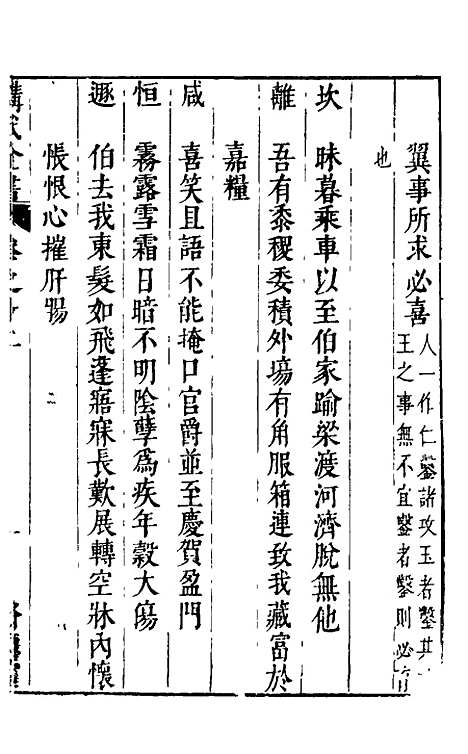 翼事所求必喜
人一作仁鑿諸攻玉者鑿其
王之事無不宜鑿者鑿則必
也
坎　昧暮乘車以至伯家踰梁渡河濟脫無他
離　吾有黍稷委積外場有角服箱連致我藏富於
嘉糧
咸　喜笑且語不能掩口官爵並至慶賀盈門
恒　霧露雪霜日暗不明陰孽為疾年穀大傷
遯　伯去我東髮如飛蓬寤寐長歎展轉空牀內懷
悵恨心摧肝腸
講武全書
卷之